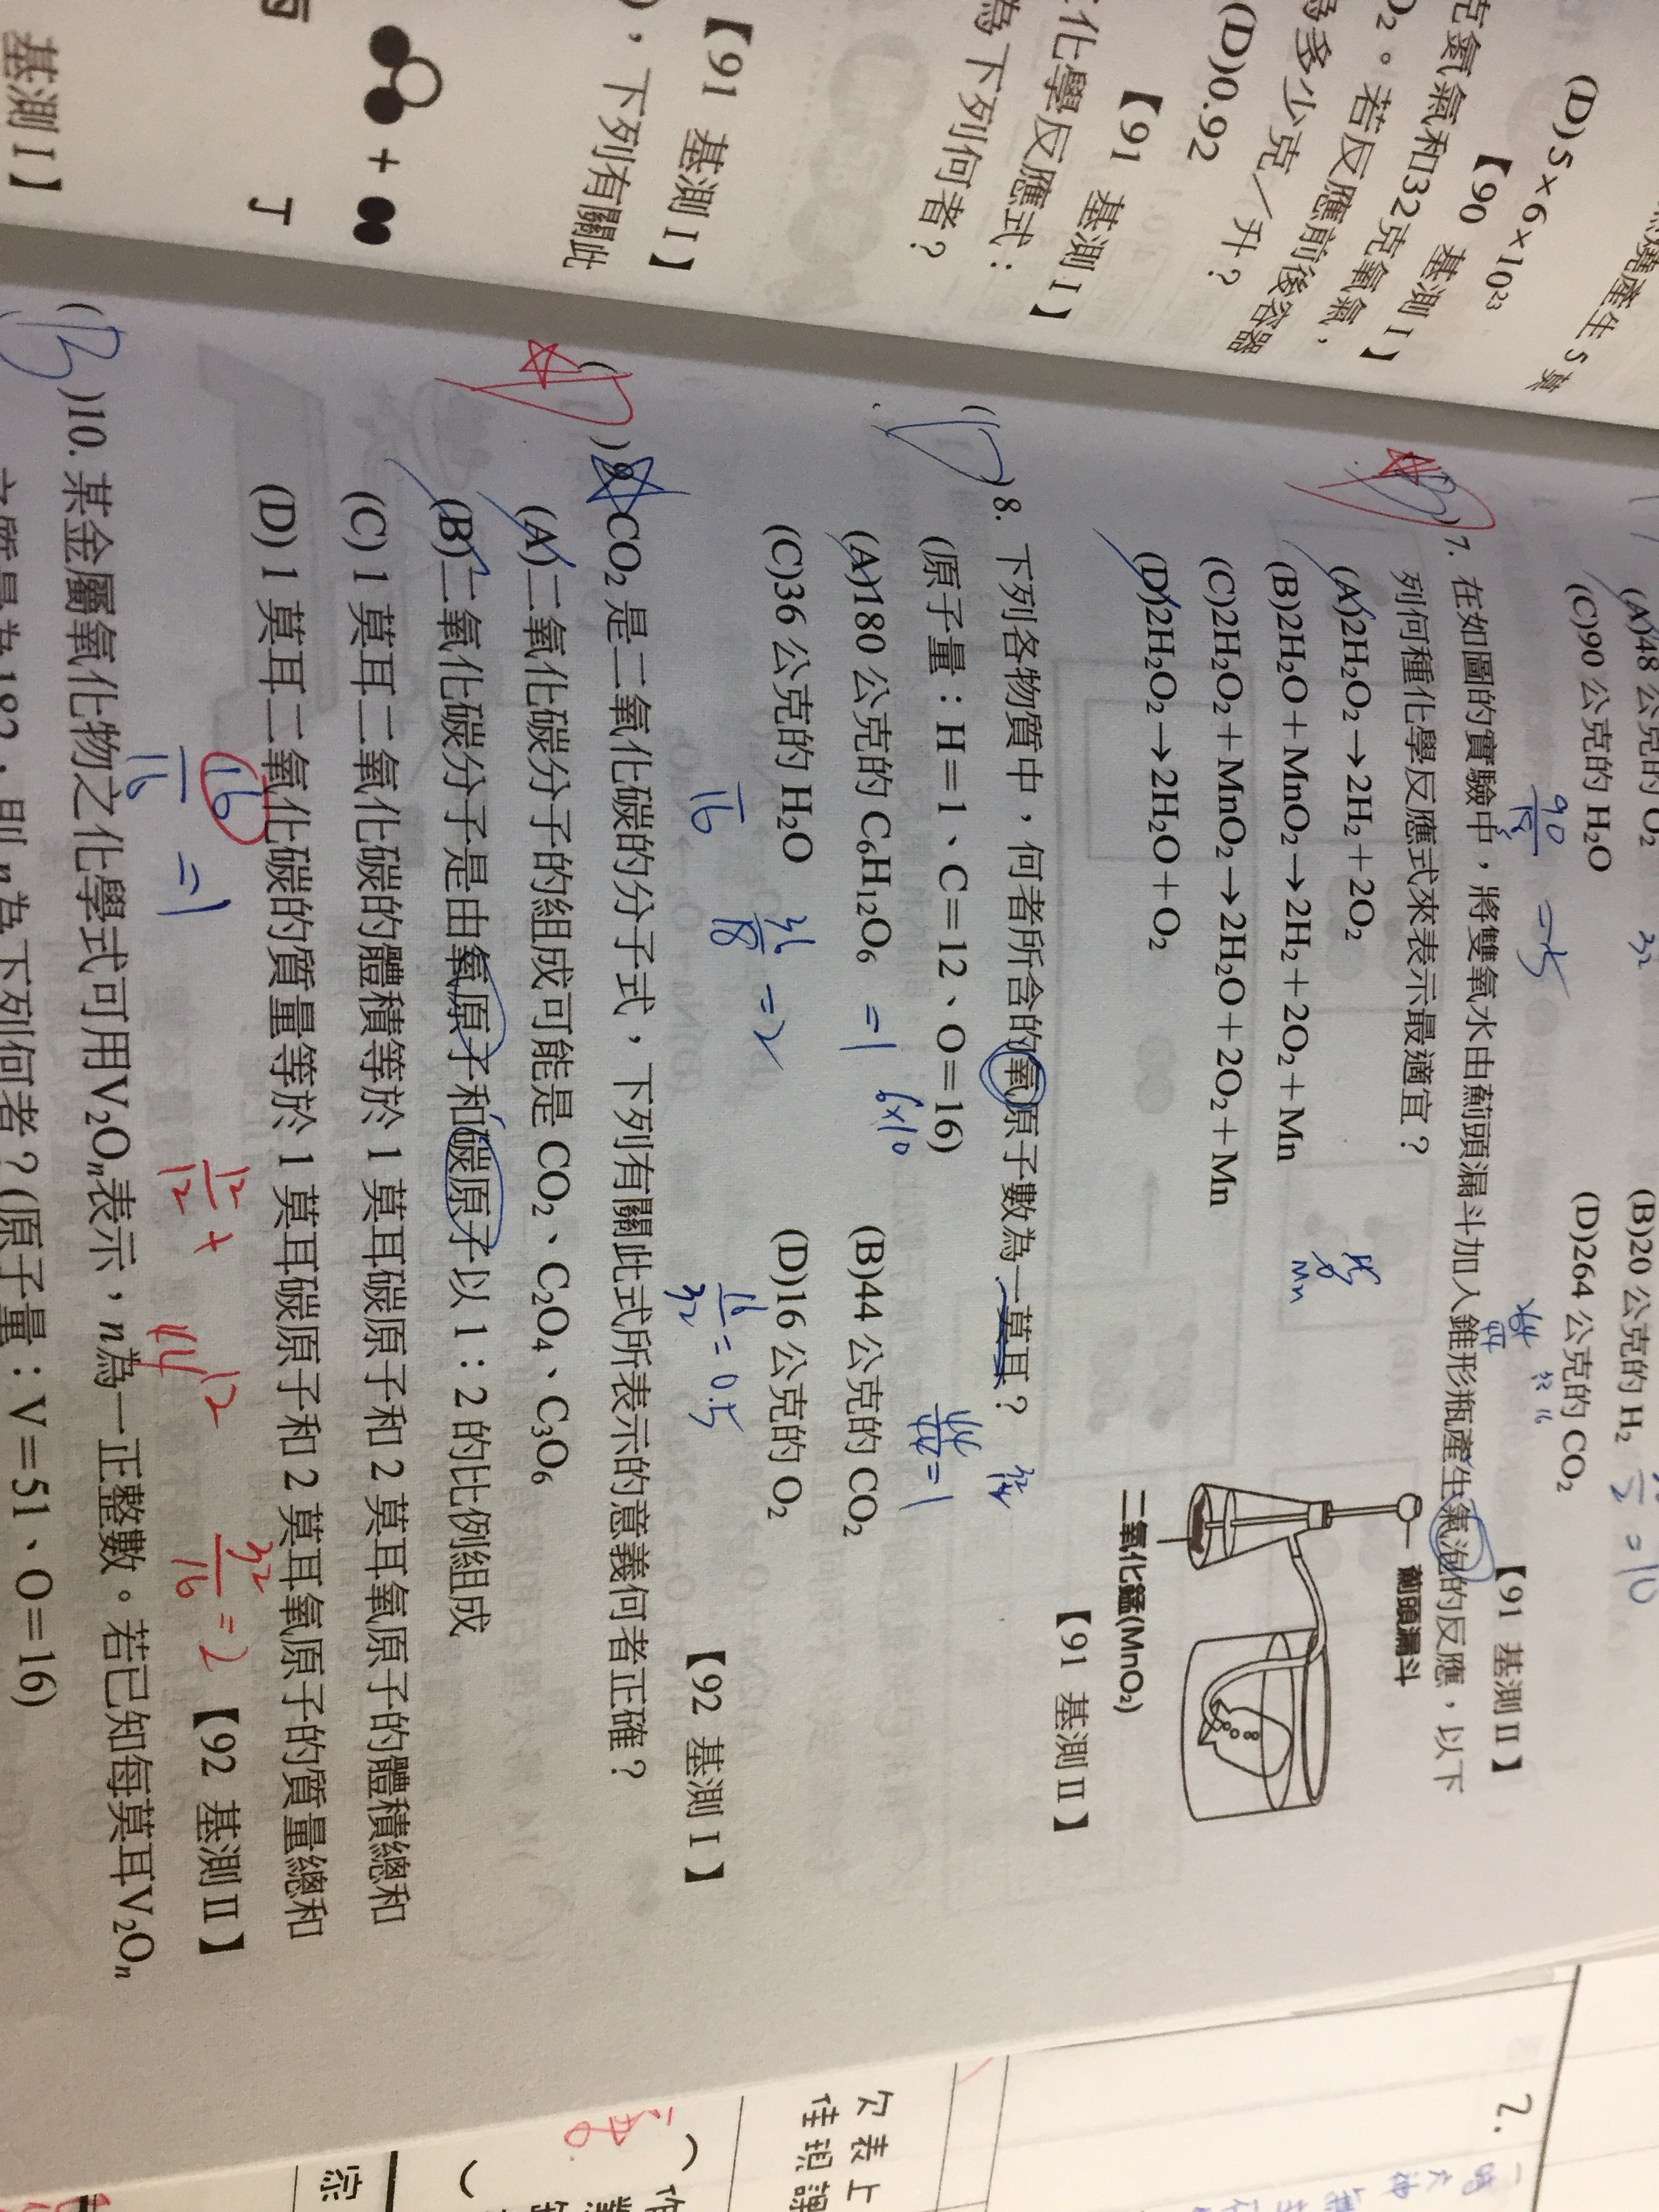 (D)5×6×10²³
【90 基測 I】
克氦氣和32克氧氣，
O₂。若反應前後容器
為多少克／升？
(D)0.92
【91 基測 I】
化學反應式：
為下列何者？
【91 基測 I】
，下列有關此
+
丁
基測 I】
(A)48 公克的 O₂
(B)20 公克的 H₂
= 10
(C)90 公克的 H₂O
(D)264 公克的 CO₂
= 5
【91 基測 II】
7. 在如圖的實驗中，將雙氧水由薊頭漏斗加入錐形瓶產生氣泡的反應，以下
列何種化學反應式來表示最適宜？
(A)2H₂O₂→2H₂+2O₂
(B)2H₂O+MnO₂→2H₂+2O₂+Mn
(C)2H₂O₂+MnO₂→2H₂O+2O₂+Mn
(D)2H₂O₂→2H₂O+O₂
薊頭漏斗
二氧化錳(MnO₂)
【91 基測 II】
(D)8. 下列各物質中，何者所含的氧原子數為一莫耳？
(原子量：H=1、C=12、O=16)
(A)180 公克的 C₆H₁₂O₆ =1 6×10
(B)44 公克的 CO₂ 44/44=1
(C)36 公克的 H₂O 36/18=2
(D)16 公克的 O₂ 16/32=0.5
【92 基測 I】
9. CO₂ 是二氧化碳的分子式，下列有關此式所表示的意義何者正確？
(A)二氧化碳分子的組成可能是 CO₂、C₂O₄、C₃O₆
(B)二氧化碳分子是由氧原子和碳原子以 1：2 的比例組成
(C) 1 莫耳二氧化碳的體積等於 1 莫耳碳原子和 2 莫耳氧原子的體積總和
(D) 1 莫耳二氧化碳的質量等於 1 莫耳碳原子和 2 莫耳氧原子的質量總和
16/16 =1
12/12 +
32/16 =2
【92 基測 II】
(B)10. 某金屬氧化物之化學式可用V₂Oₙ表示，n為一正整數。若已知每莫耳V₂Oₙ
之質量為182，則 n 為下列何者？(原子量：V=51、O=16)
2.